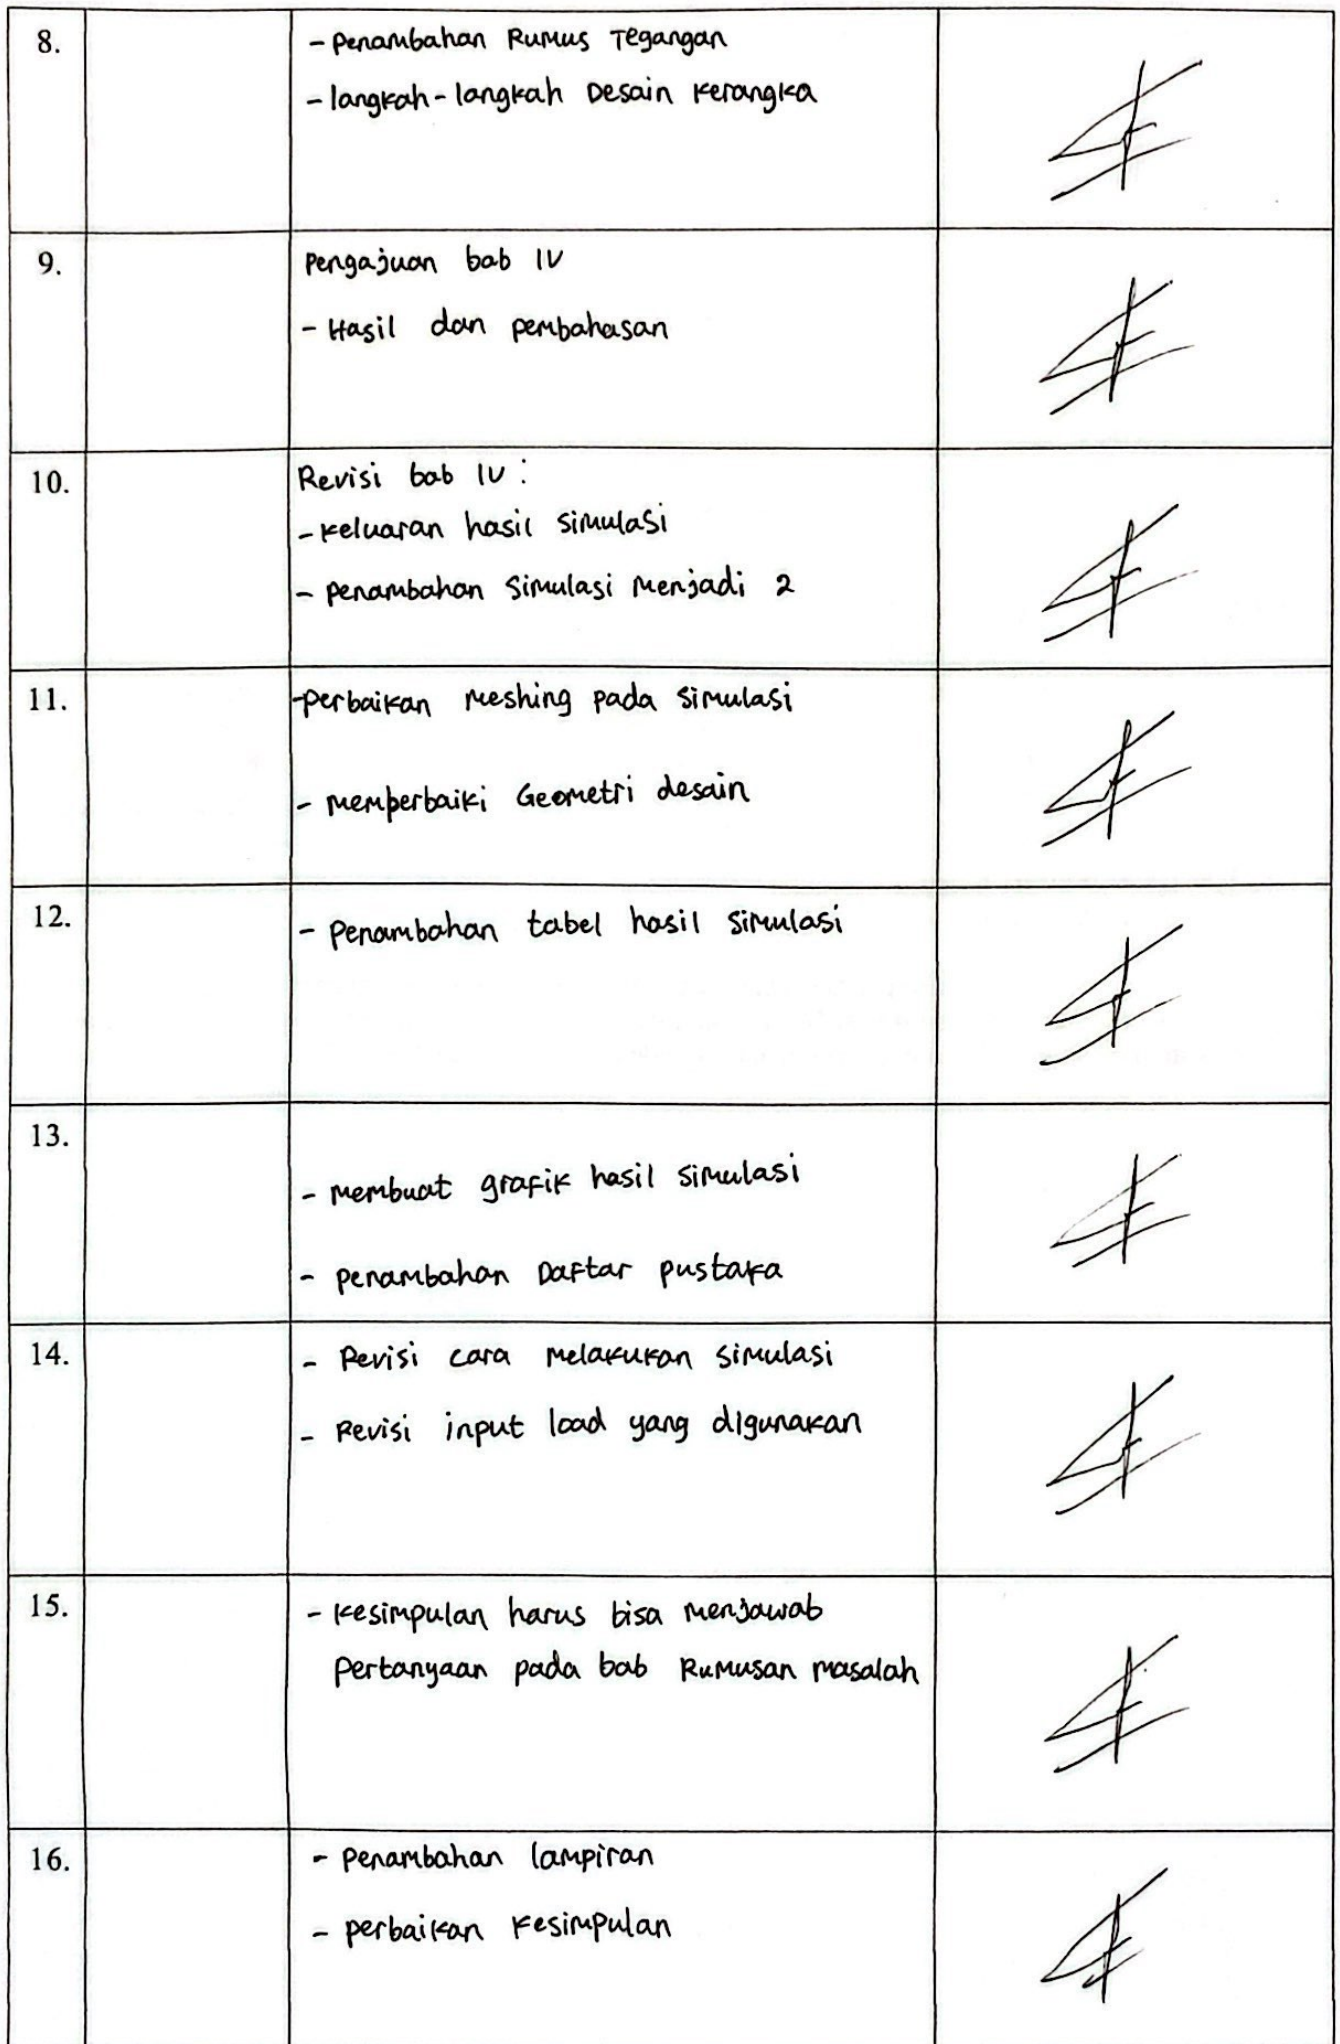 8.
- Penambahan Rumus Tegangan
- langkah-langkah Desain Kerangka
9.
Pengajuan bab IV
- Hasil dan pembahasan
10.
Revisi bab IV :
- Keluaran hasil simulasi
- Penambahan Simulasi Menjadi 2
11.
- Perbaikan Meshing pada simulasi
- Memperbaiki Geometri desain
12.
- Penambahan tabel hasil simulasi
13.
- Membuat grafik hasil simulasi
- Penambahan Daftar pustaka
14.
- Revisi cara melakukan simulasi
- Revisi input load yang digunakan
15.
- Kesimpulan harus bisa menjawab
Pertanyaan pada bab Rumusan masalah
16.
- Penambahan lampiran
- perbaikan kesimpulan